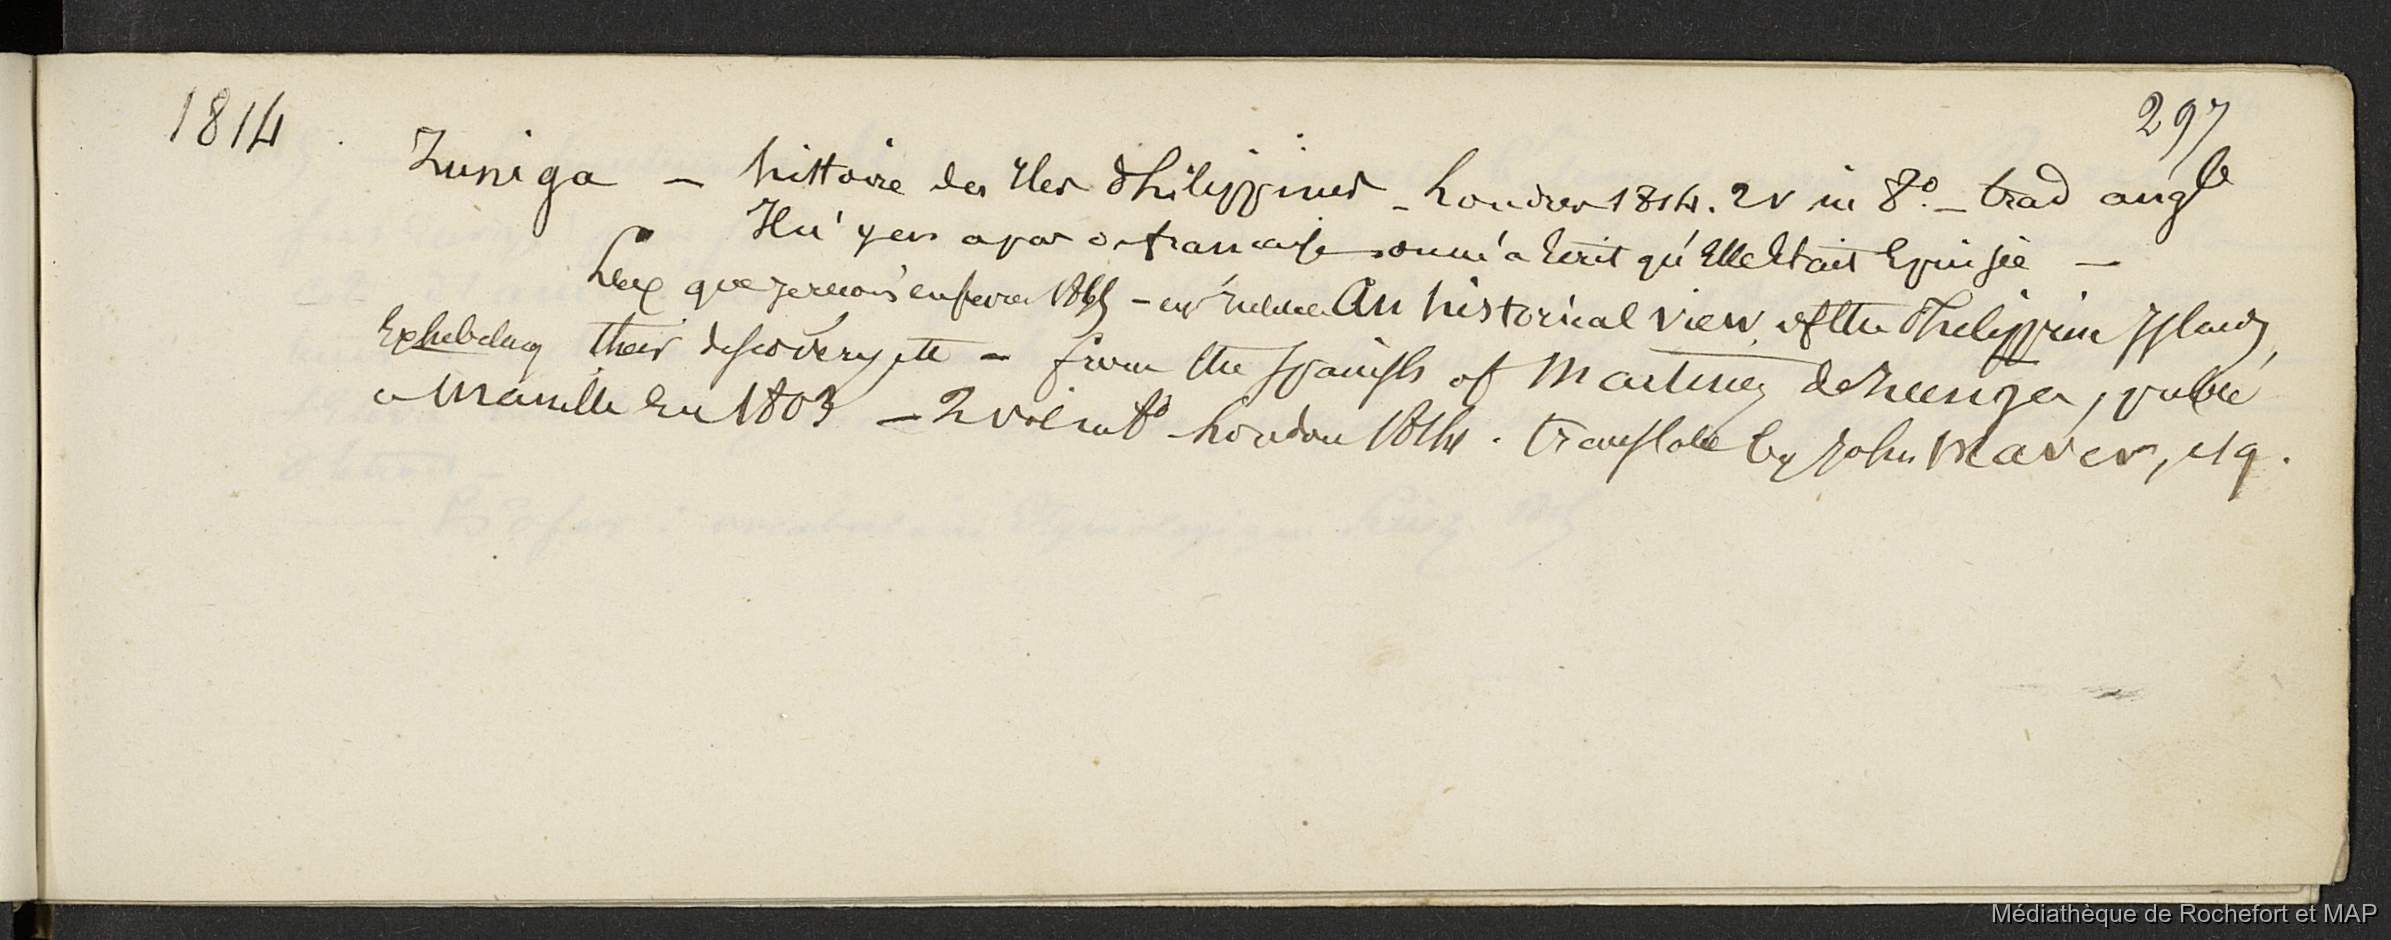 1814
297
Zuniga — histoire des Iles Philippines - Londres 1814. 2 v in 8° — trad angle
Il n'y en a pas de française on m'a écrit qu'Elle Etait Epuisée —
Ceux que je reçois en fevrier 1865 — est intitulé An historical view of the Philippine Islands,
Exhebeling their discovery etc — from the Spanish of Martinez de Zuniga, publié
a Manille En 1803 — 2 vol in 8° London 1814. translate by John Maver, esq.
Médiathèque de Rochefort et MAP